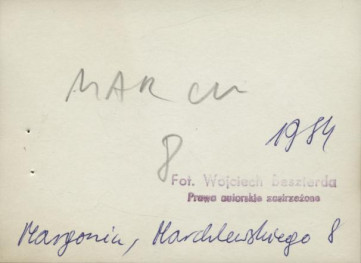 MARCIN
1984
8
Fot. Wojciech Beszterda
Prawa autorskie zastrzeżone
Margonin, Marchlewskiego 8